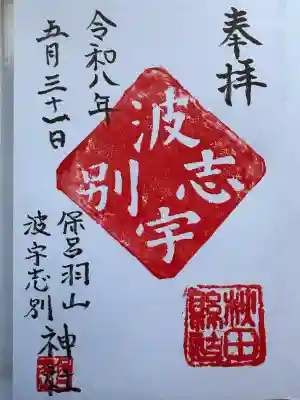 奉拝
波宇志別
秋田
令和八年
五月三十一日
保呂羽山
波宇志別
神社